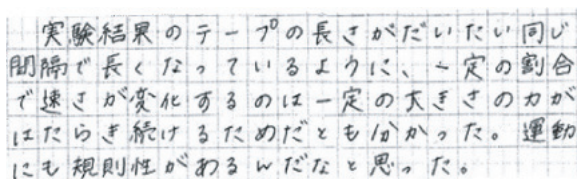 実験結果のテープの長さがだいたい同じ
間隔で長くなっているように、一定の割合
で速さが変化するのは一定の大きさの力が
はたらき続けるためだとも分かった。運動
にも規則性があるんだなと思った。